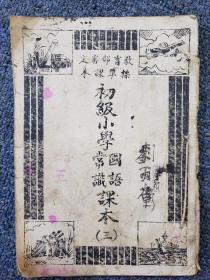 教育部審定
標準課本
初級小學
國語
常識
課本
(三)